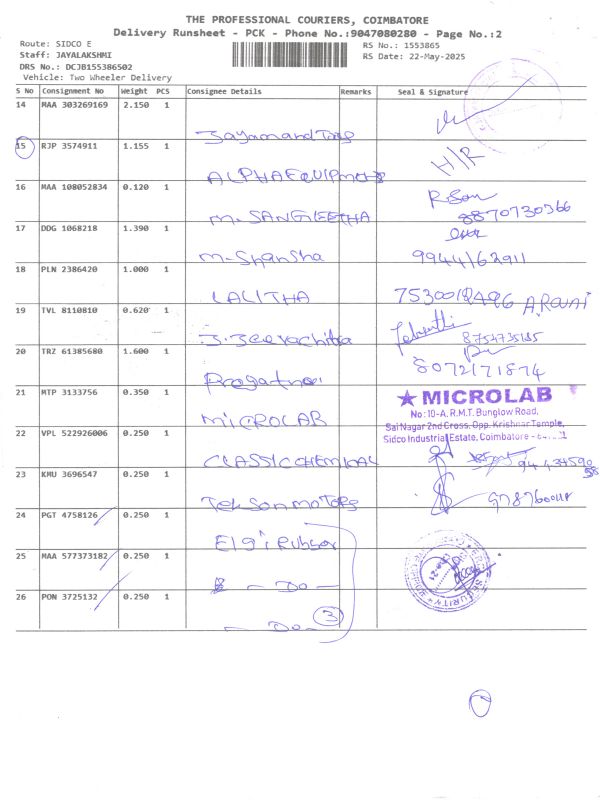 THE PROFESSIONAL COURIERS, COIMBATORE
Delivery Runsheet - PCK - Phone No.:9047080280 - Page No.:2
Route: SIDCO E
RS No.: 1553865
Staff: JAYALAKSHMI
RS Date: 22-May-2025
DRS No.: DCJB155386502
Vehicle: Two Wheeler Delivery
S No Consignment No Weight PCS Consignee Details Remarks Seal & Signature
14 MAA 303269169 2.150 1
15 RJP 3574911 1.155 1 H/R
ALPHA EQUIPMENTS
16 MAA 108052834 0.120 1
M. SANGEETHA 8870730366
17 DDG 1068218 1.390 1
M. Shansha 9944162911
18 PLN 2386420 1.000 1
LALITHA A. Rani
19 TVL 8110810 0.620 1
20 TRZ 61385680 1.600 1
8072171874
21 MTP 3133756 0.350 1
MICROLAB
★ MICROLAB
No:10-A, R.M.T. Bunglow Road,
Sai Nagar 2nd Cross, Opp. Krishnar Temple,
Sidco Industrial Estate, Coimbatore -
22 VPL 522926006 0.250 1
CLASSIC CHEMICAL
23 KMU 3696547 0.250 1
Tekson motors
24 PGT 4758126 0.250 1
25 MAA 577373182 0.250 1
- Do -
26 PON 3725132 0.250 1
- Do - 3
SECURITY